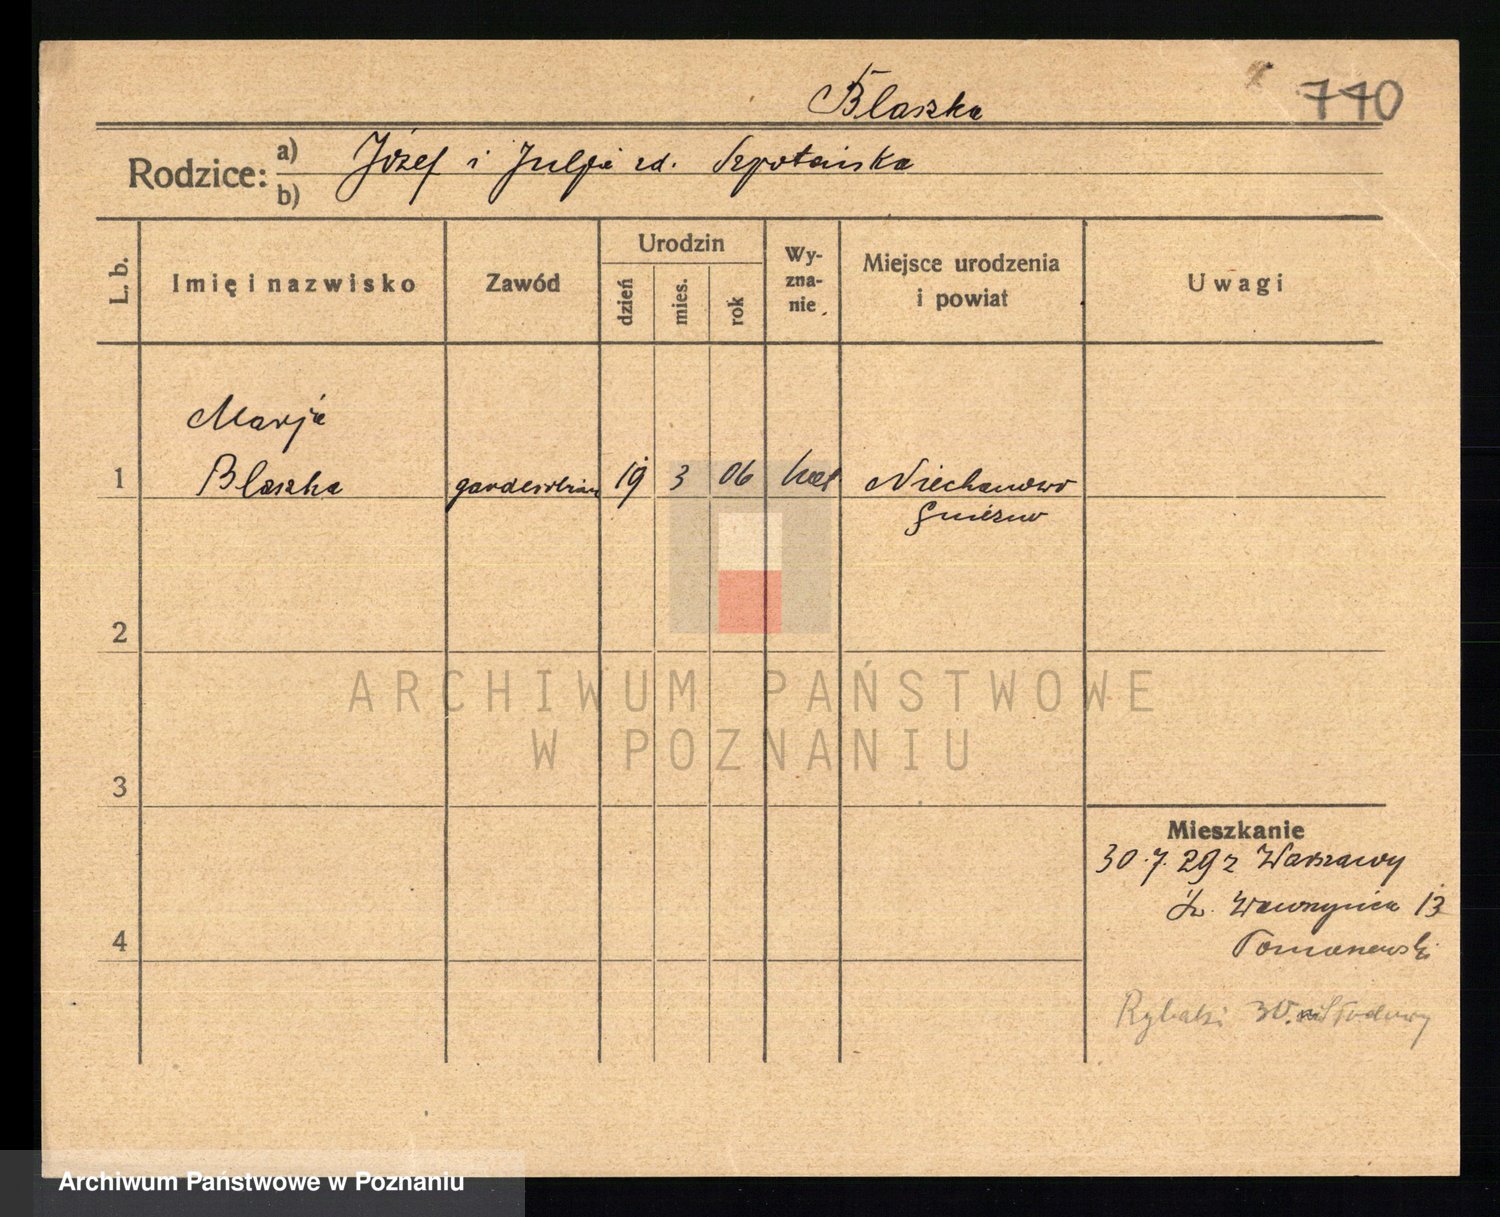 Blaszka
740
Rodzice: a) Józef i Julja zd. Szpotańska
b)
L. b.
Imię i nazwisko
Zawód
Urodzin
dzień
mies.
rok
Wy-
zna-
nie
Miejsce urodzenia
i powiat
Uwagi
Marja
1 Blaszka 19 3 06 kat Niechanowo
Gniezno
2
ARCHIWUM PAŃSTWOWE
W POZNANIU
3
Mieszkanie
30.7.29 z Warszawy
Św. Wawrzyńca 13
Tomaszewski
4
Rybaki 30.
Archiwum Państwowe w Poznaniu